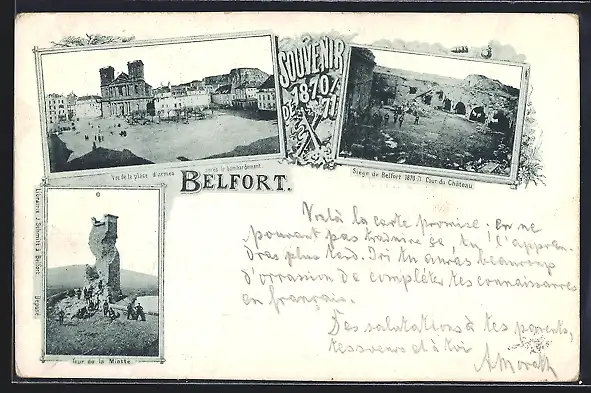 SOUVENIR
DE 1870/
71
Vue de la place d'armes après le bombardement.
Siège de Belfort 1870/71 Cour du Château
BELFORT.
Tour de la Miotte
Librairie J. Schmitt à Belfort Déposé.
Voilà la carte promise; en ne
pouvant pas traduire ça, tu l'appren-
dras plus tard. Ici tu auras beaucoup
d'occasion de compléter tes connaissances
en français.
Des salutations à tes parents,
tes soeurs et à toi